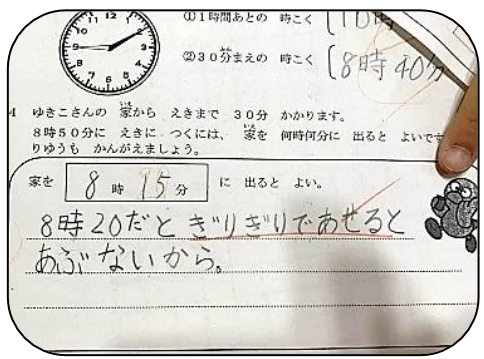 ①1時間あとの 時こく
②30分まえの 時こく 8時40分
4 ゆきこさんの 家から えきまで 30分 かかります。
8時50分に えきに つくには、 家を 何時何分に 出ると よいです
りゆうも かんがえましょう。
家を 8 時 15 分 に 出ると よい。
8時20だと ぎりぎりであせると
あぶないから。